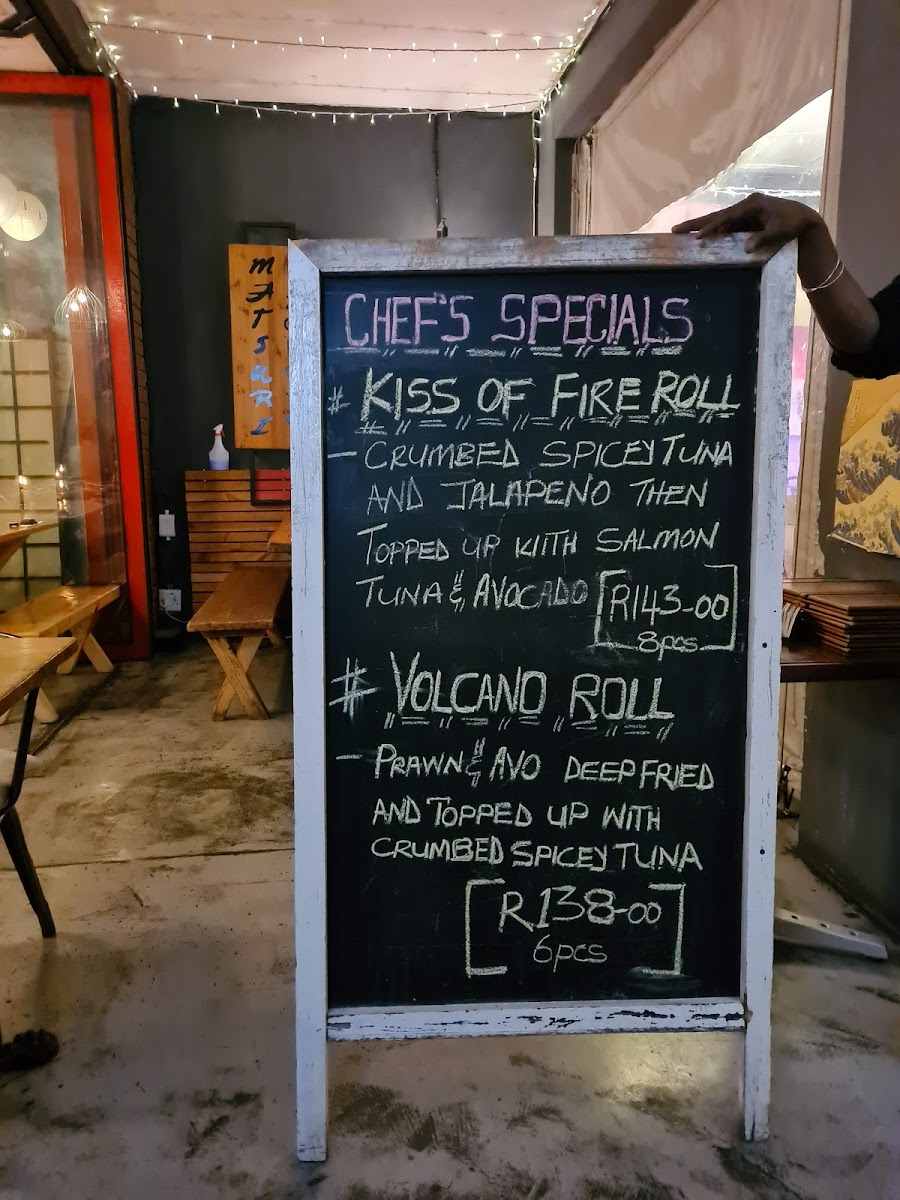 MATSURI
CHEF'S SPECIALS
# KISS OF FIRE ROLL
- CRUMBED SPICEY TUNA
AND JALAPENO THEN
TOPPED UP WITH SALMON
TUNA & AVOCADO
R143-00
8pcs
# VOLCANO ROLL
- PRAWN & AVO DEEP FRIED
AND TOPPED UP WITH
CRUMBED SPICEY TUNA
R138-00
6pcs